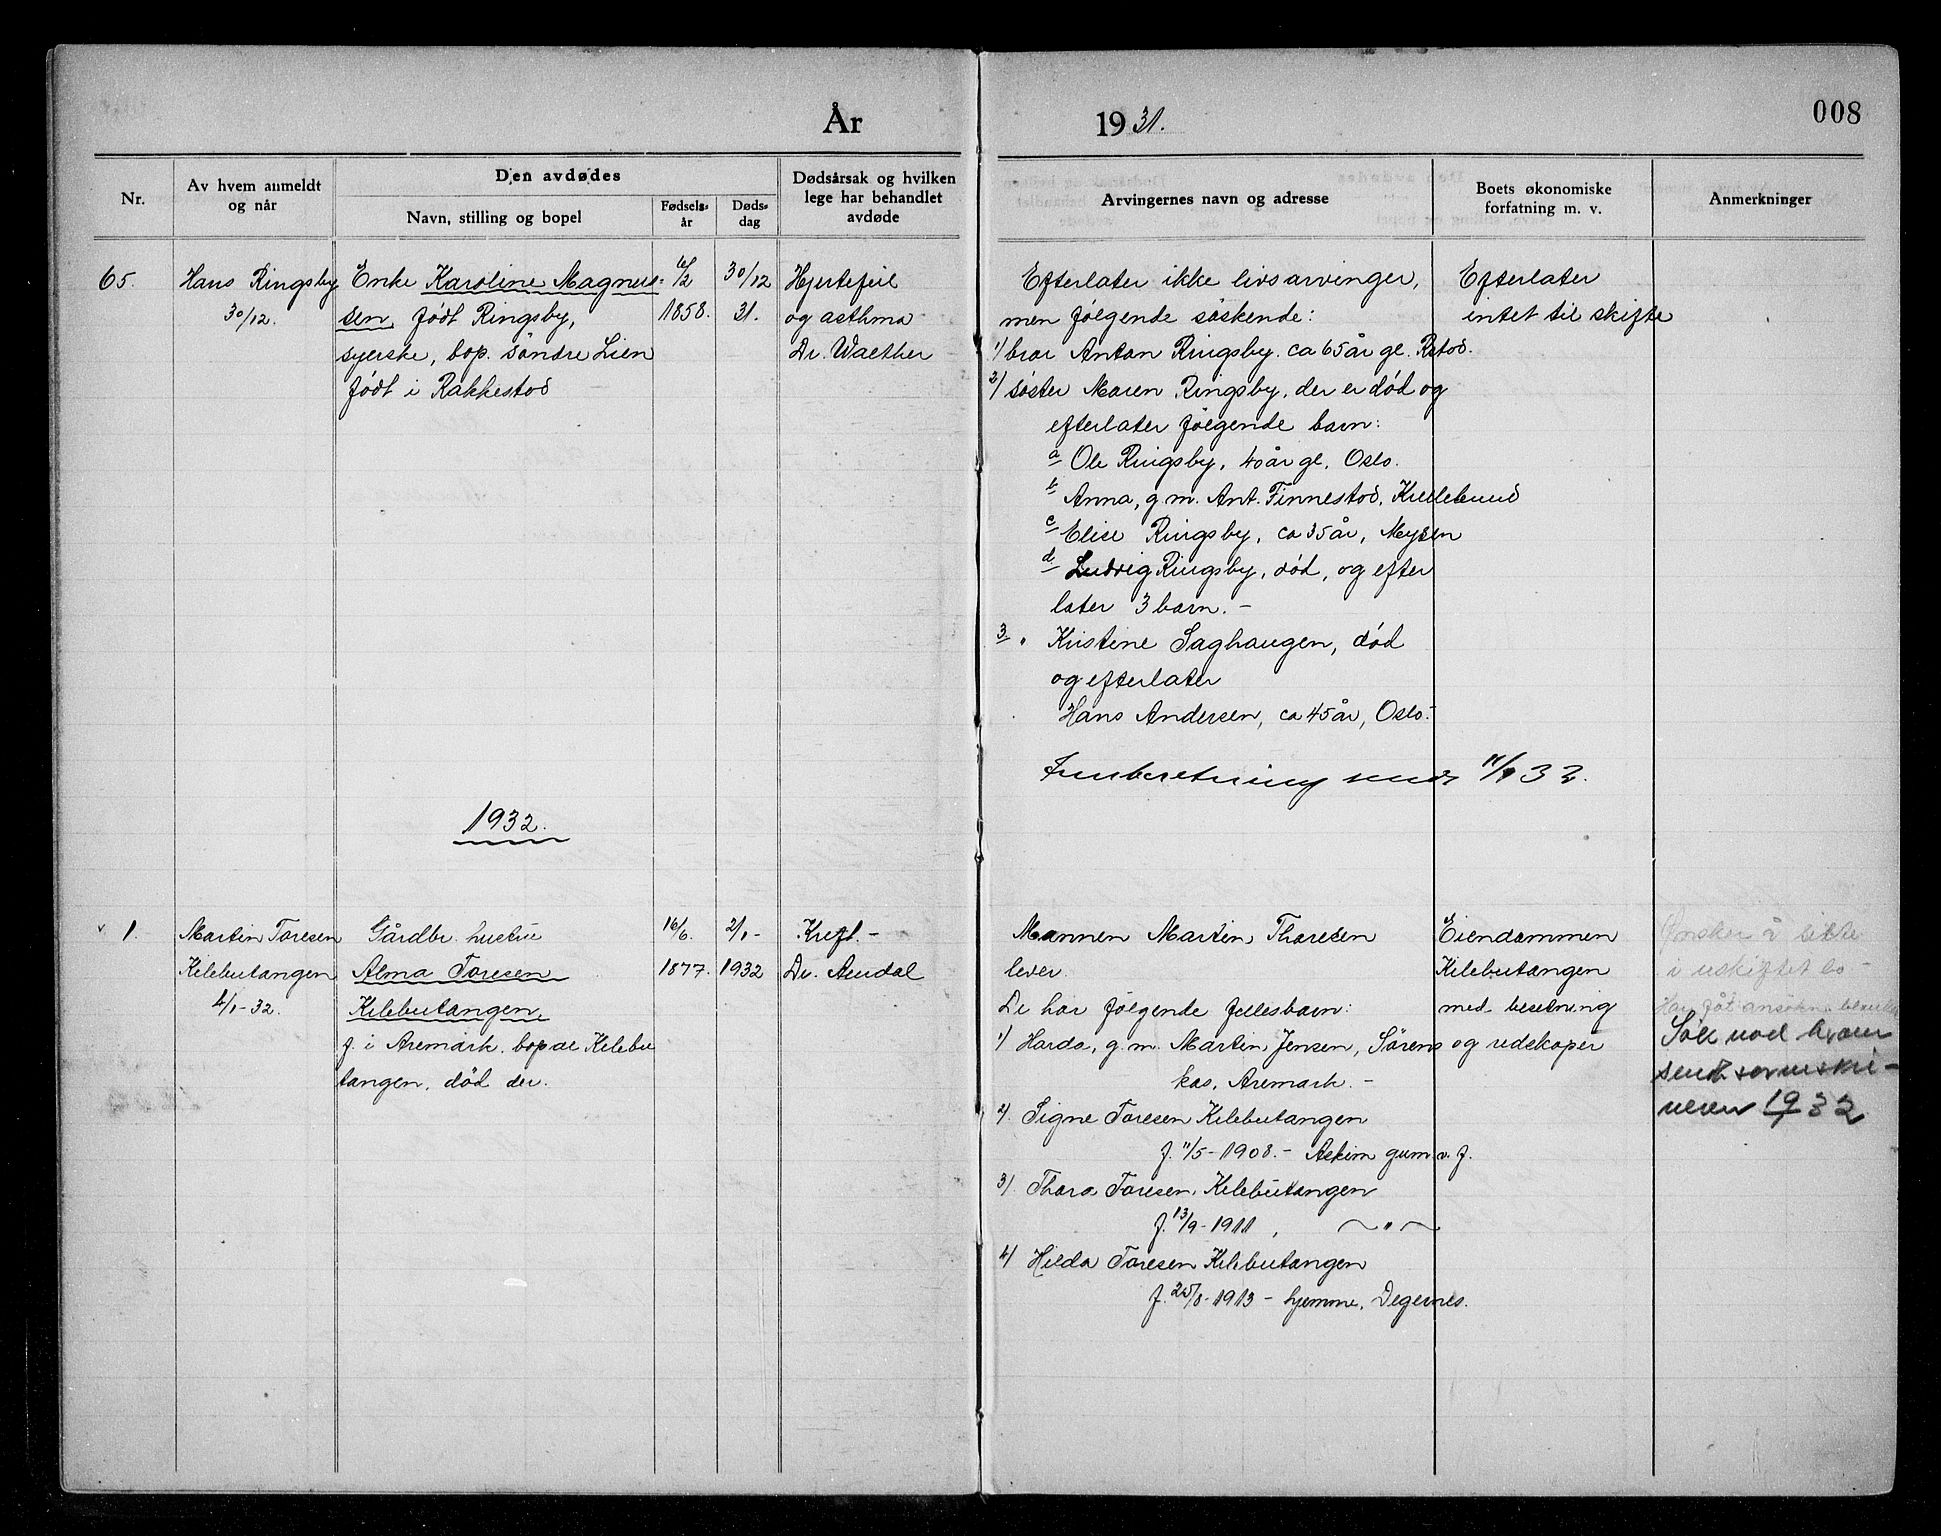 År 1931.
008
Nr.
Av hvem anmeldt og når
Den avdødes
Navn, stilling og bopel
Fødselsår
Dødsdag
Dødsårsak og hvilken lege har behandlet avdøde
Arvingernes navn og adresse
Boets økonomiske forfatning m. v.
Anmerkninger
65.
Hans Ringsby
30/12.
Enke Karoline Magnus-
sen, født Ringsby,
syerske, bop. söndre Lien
født i Rakkestad
/2
1858.
30/12
31.
Hjertefeil
og asthma
Dr. Walther
Efterlater ikke livsarvinger,
men følgende söskende:
1) bror Anton Ringsby. ca 65 år gl. R.stad.
2) söster Maren Ringsby, der er død og
efterlater følgende barn:
a Ole Ringsby, 40 år gl. Oslo.
b Anna, g.m. Ant. Finnestad,
c Elise Ringsby, ca 35 år, Mysen
d Ludvig Ringsby, død, og efter
later 3 barn. –
3 " Kristine Saghaugen, død
og efterlater
Hans Andersen, ca 45 år, Oslo.
Innberetning sendt 11/1 32.
Efterlater
intet til skifte
1932.
v 1.
Martin Toresen
Kilebutangen
4/1-32.
Gårdbr. hustru
Alma Toresen
Kilebutangen,
f. i Aremark, bopæl Kilebu
tangen, død der.
16/6.
1877.
2/1-
1932
Kreft. –
Dr. Arudal
Mannen Martin Thoresen
lever.
De har følgende fellesbarn:
1) Harda, g.m. Martin Jensen, Sörens
kas, Aremark. –
2) Signe Toresen Kilebutangen
f. 11/5-1908. – Askim gum.v.f.
3) Thora Toresen, Kilebutangen
f. 13/9-1911, — " —
4) Hilda Toresen Kilebutangen
f. 25/8-1913 – hjemme, Degernes.
Eiendommen
Kilebutangen
med besetning
og redskaper
Ønsker å sitte
i uskiftet bo –
Har fåt
sendt sorenskri-
veren 19/ 32